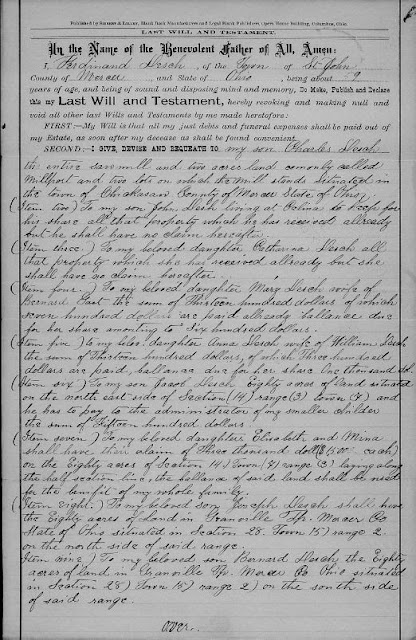 Published by Siebert & Lilley, Blank Book Manufacturers and Legal Blank Publishers, Opera House building, Columbus, Ohio.
LAST WILL AND TESTAMENT.
In the Name of the Benevolent Father of All, Amen:
I, Ferdinand Desch of the Town of St John
County of Mercer and State of Ohio, being about 59
years of age, and being of sound and disposing mind and memory, Do Make, Publish and Declare
this my Last Will and Testament, hereby revoking and making null and
void all other last Wills and Testaments by me made heretofore:
FIRST:—My Will is that all my just debts and funeral expenses shall be paid out of
my Estate, as soon after my decease as shall be found convenient.
SECOND:—I GIVE, DEVISE AND BEQUEATH TO my son Charles Desch
the entire sawmill and two acres land comonly called
Millport and two lots on which the mill stands situated in
the town of Chickasaw County of Mercer State of Ohio
(Item two) To my son John Desch living at Celina to keep for
his share all that property which he has received allready
but he shall have no claim hereafter
(Item three.) To my beloved daughter Catharina Desch all
that property which she has received allready but she
shall have no claim hereafter.
(Item four.) To my beloved daughter Mary Desch wife of
Bernard East the sum of Thirteen hundred dollars of which
seven hundred dollars are paid allready ballance due
for her share amonting to Six hundred dollars.
(Item five) to my belov. daughter Anna Desch wife of William Desch
the sum of Thirteen hundred dollars, of which Three hundred
dollars are paid, ballance due for her share One thousand dol.
(Item six) To my son Jacob Desch Eighty acres of land situated
on the north east side of Section (14) range (3) town (7) and
he has to pay to the administrator of my smaller childer
the sum of Fifteen hundred dollars.
(Item seven) To my beloved daughters Elisabeth and Mina
shall have their claim of Three thousand doll ($1500 each)
on the Eighty acres of Section 14) Town (7) range (3) laying along
the half section line, the ballance of said land shall be used
for the benifit of my whole family.
(Item eight.) To my beloved son Joseph Desch shall have
the Eighty acres of land in Granville Tp. Mercer Co
State of Ohio situated in Section 28. Town 15) range 2
on the north side of said range.
(Item nine) To my beloved son Bernard Desch the Eighty
acres of land in Granville Tp. Mercer Co Ohio situated
in Section 28) Town 15) range 2) on the south side
of said range.
over.